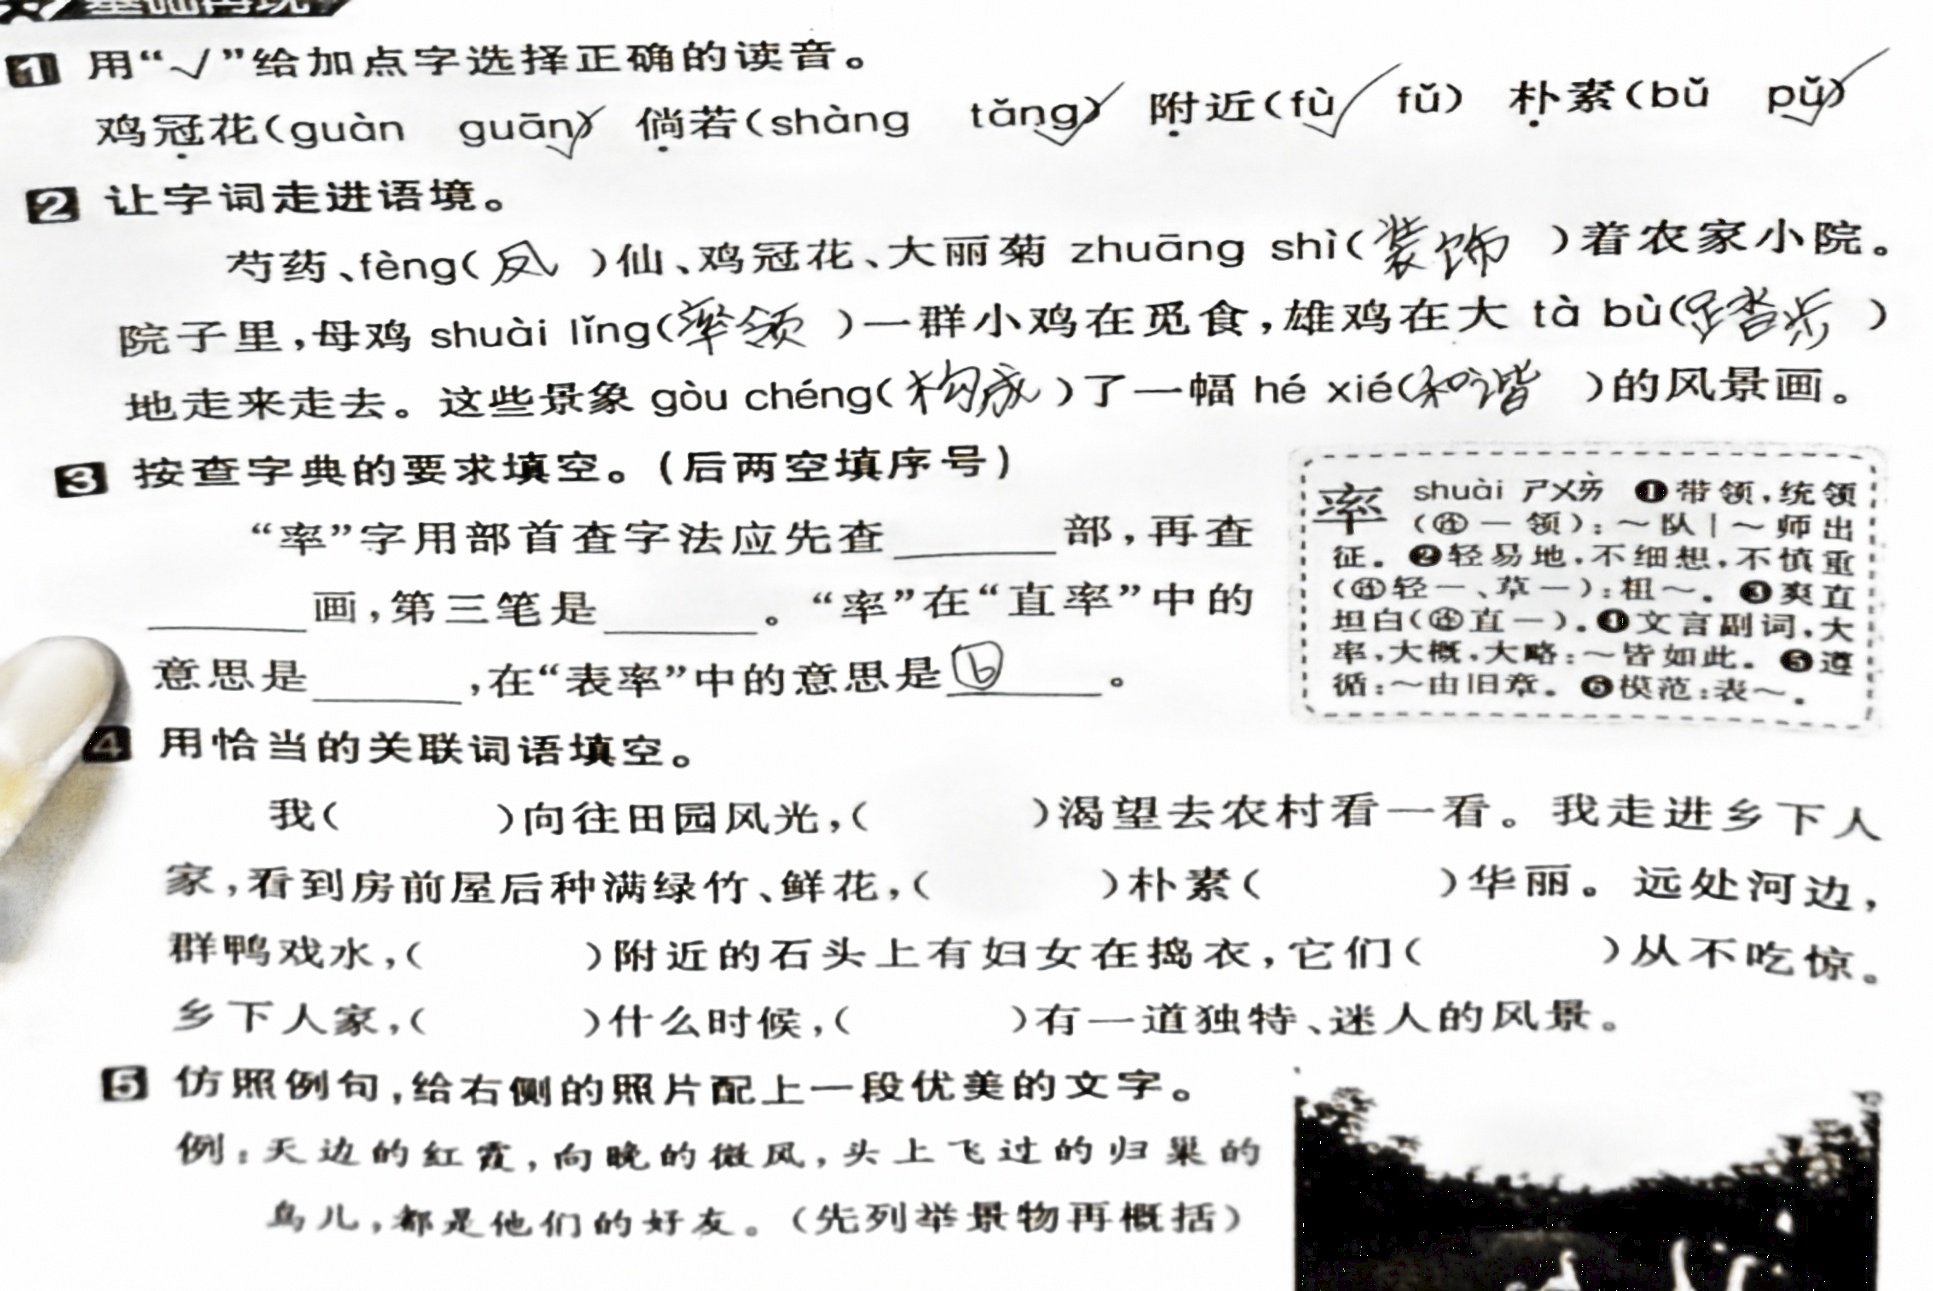 基础再现
1 用“√”给加点字选择正确的读音。
鸡冠花(guàn guān)√ 倘若(shàng tǎng)√ 附近(fù√ fǔ) 朴素(bǔ pǔ)√
2 让字词走进语境。
芍药、fèng(凤)仙、鸡冠花、大丽菊 zhuāng shì(装饰)着农家小院。
院子里,母鸡 shuài lǐng(率领)一群小鸡在觅食,雄鸡在大 tà bù(踏步)
地走来走去。这些景象 gòu chéng(构成)了一幅 hé xié(和谐)的风景画。
3 按查字典的要求填空。(后两空填序号)
“率”字用部首查字法应先查______部,再查
______画,第三笔是______。“率”在“直率”中的
意思是______,在“表率”中的意思是⑥。
率 shuài ㄕㄨㄞˋ ❶带领,统领
(㊣一领):~队|~师出
征。❷轻易地,不细想,不慎重
(㊣轻一、草一):粗~。❸爽直
坦白(㊣直一)。❹文言副词,大
率,大概,大略:~皆如此。❺遵
循:~由旧章。❻模范:表~。
4 用恰当的关联词语填空。
我( )向往田园风光,( )渴望去农村看一看。我走进乡下人
家,看到房前屋后种满绿竹、鲜花,( )朴素( )华丽。远处河边,
群鸭戏水,( )附近的石头上有妇女在捣衣,它们( )从不吃惊。
乡下人家,( )什么时候,( )有一道独特、迷人的风景。
5 仿照例句,给右侧的照片配上一段优美的文字。
例:天边的红霞,向晚的微风,头上飞过的归巢的
鸟儿,都是他们的好友。(先列举景物再概括)